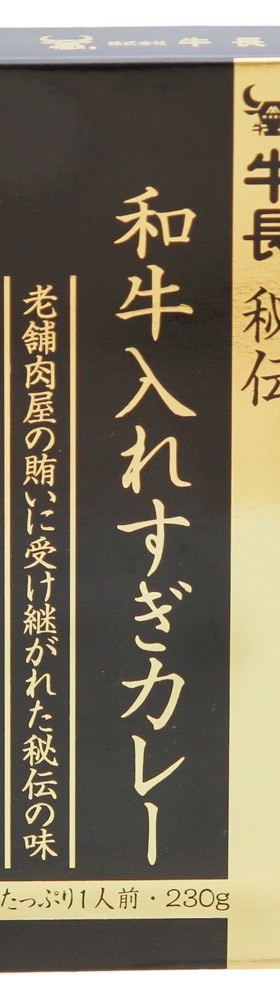 株式会社 牛長
牛長
秘伝
和牛入れすぎカレー
老舗肉屋の賄いに受け継がれた秘伝の味
たっぷり1人前・230g